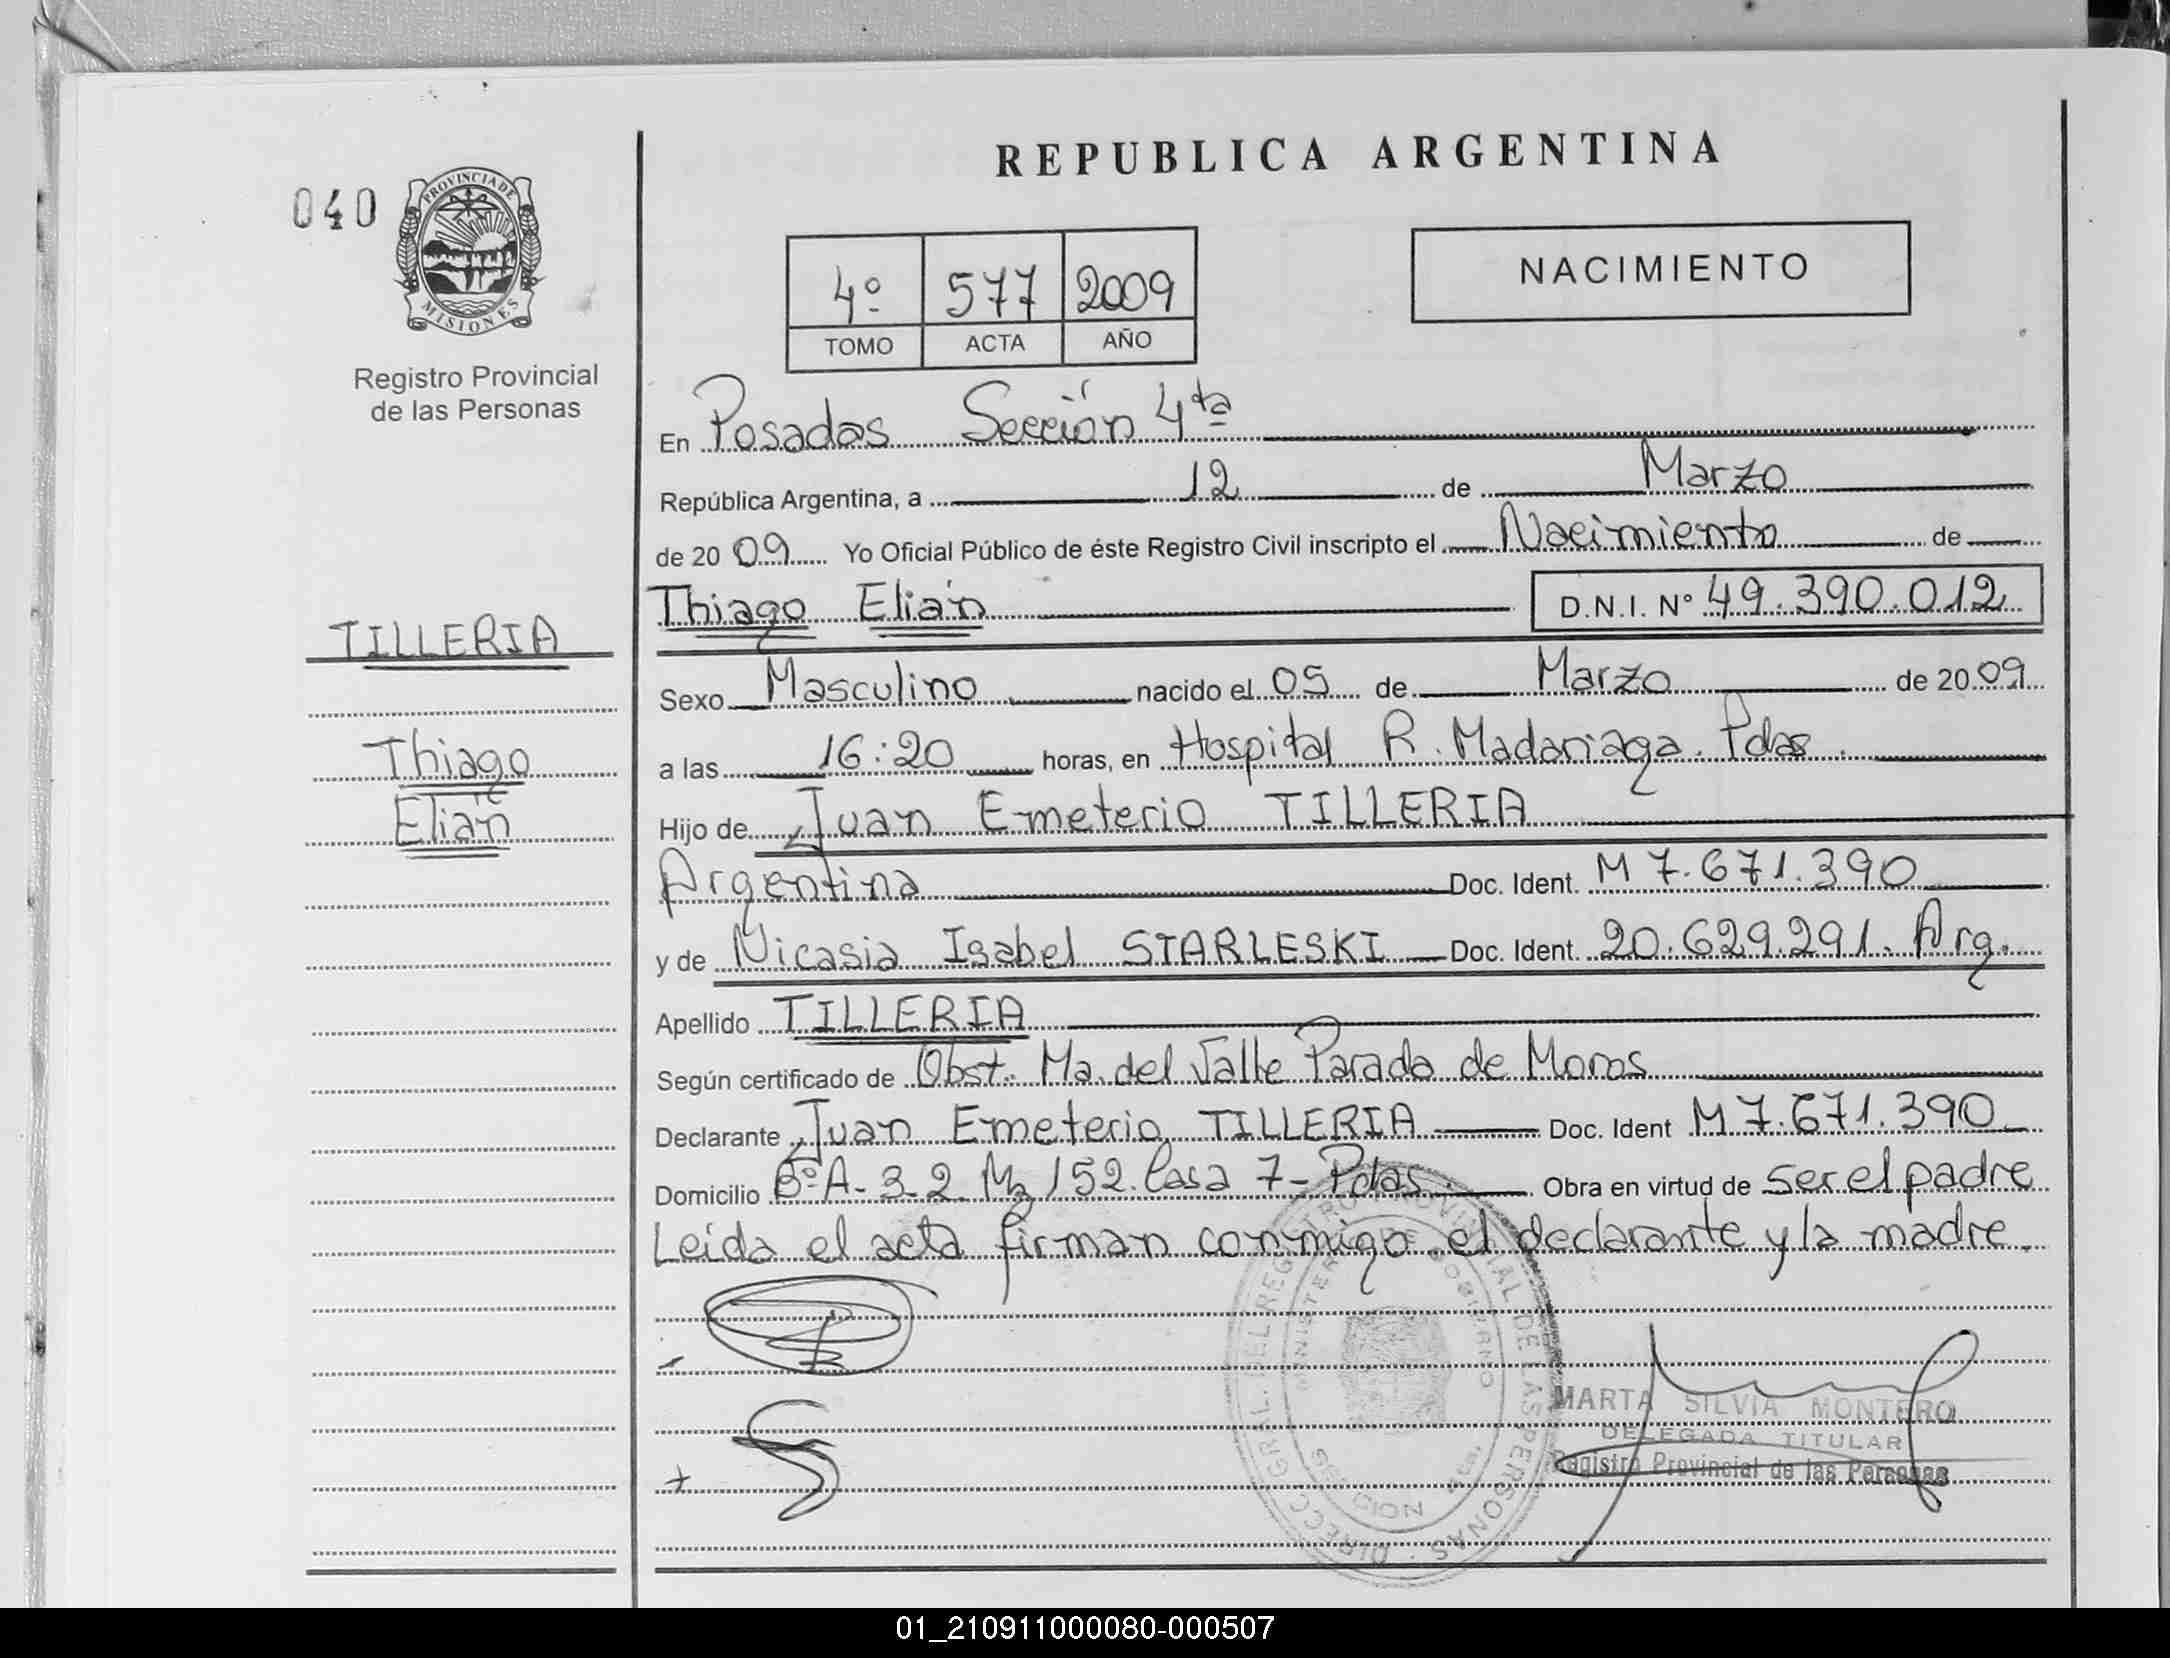 REPUBLICA ARGENTINA
040
PROVINCIA DE
MISIONES
Registro Provincial
de las Personas
4º 577 2009
TOMO ACTA AÑO
NACIMIENTO
En Posadas Sección 4ta
República Argentina, a 12 de Marzo
de 2009 Yo Oficial Público de éste Registro Civil inscripto el Nacimiento de
Thiago Elián D.N.I. Nº 49.390.012
TILLERIA
Sexo Masculino nacido el 05 de Marzo de 2009
Thiago
Elián
a las 16:20 horas, en Hospital R. Madariaga. Pdas.
Hijo de Juan Emeterio TILLERIA
Argentina Doc. Ident. M 7.671.390
y de Nicasia Isabel STARLESKI Doc. Ident. 20.629.291. Arg.
Apellido TILLERIA
Según certificado de Obst. Ma. del Valle Parada de
Declarante Juan Emeterio TILLERIA Doc. Ident M 7.671.390
Domicilio Bº A-3-2 Mz 152. Casa 7- Pdas. Obra en virtud de ser el padre
Leída el acta firman conmigo el declarante y la madre.
DIRECC. GRAL. DEL REGISTRO PROVINCIAL DE LAS PERSONAS
MINISTERIO DE GOBIERNO
MARTA SILVIA MONTERO
DELEGADA TITULAR
Registro Provincial de las Personas
01_210911000080-000507